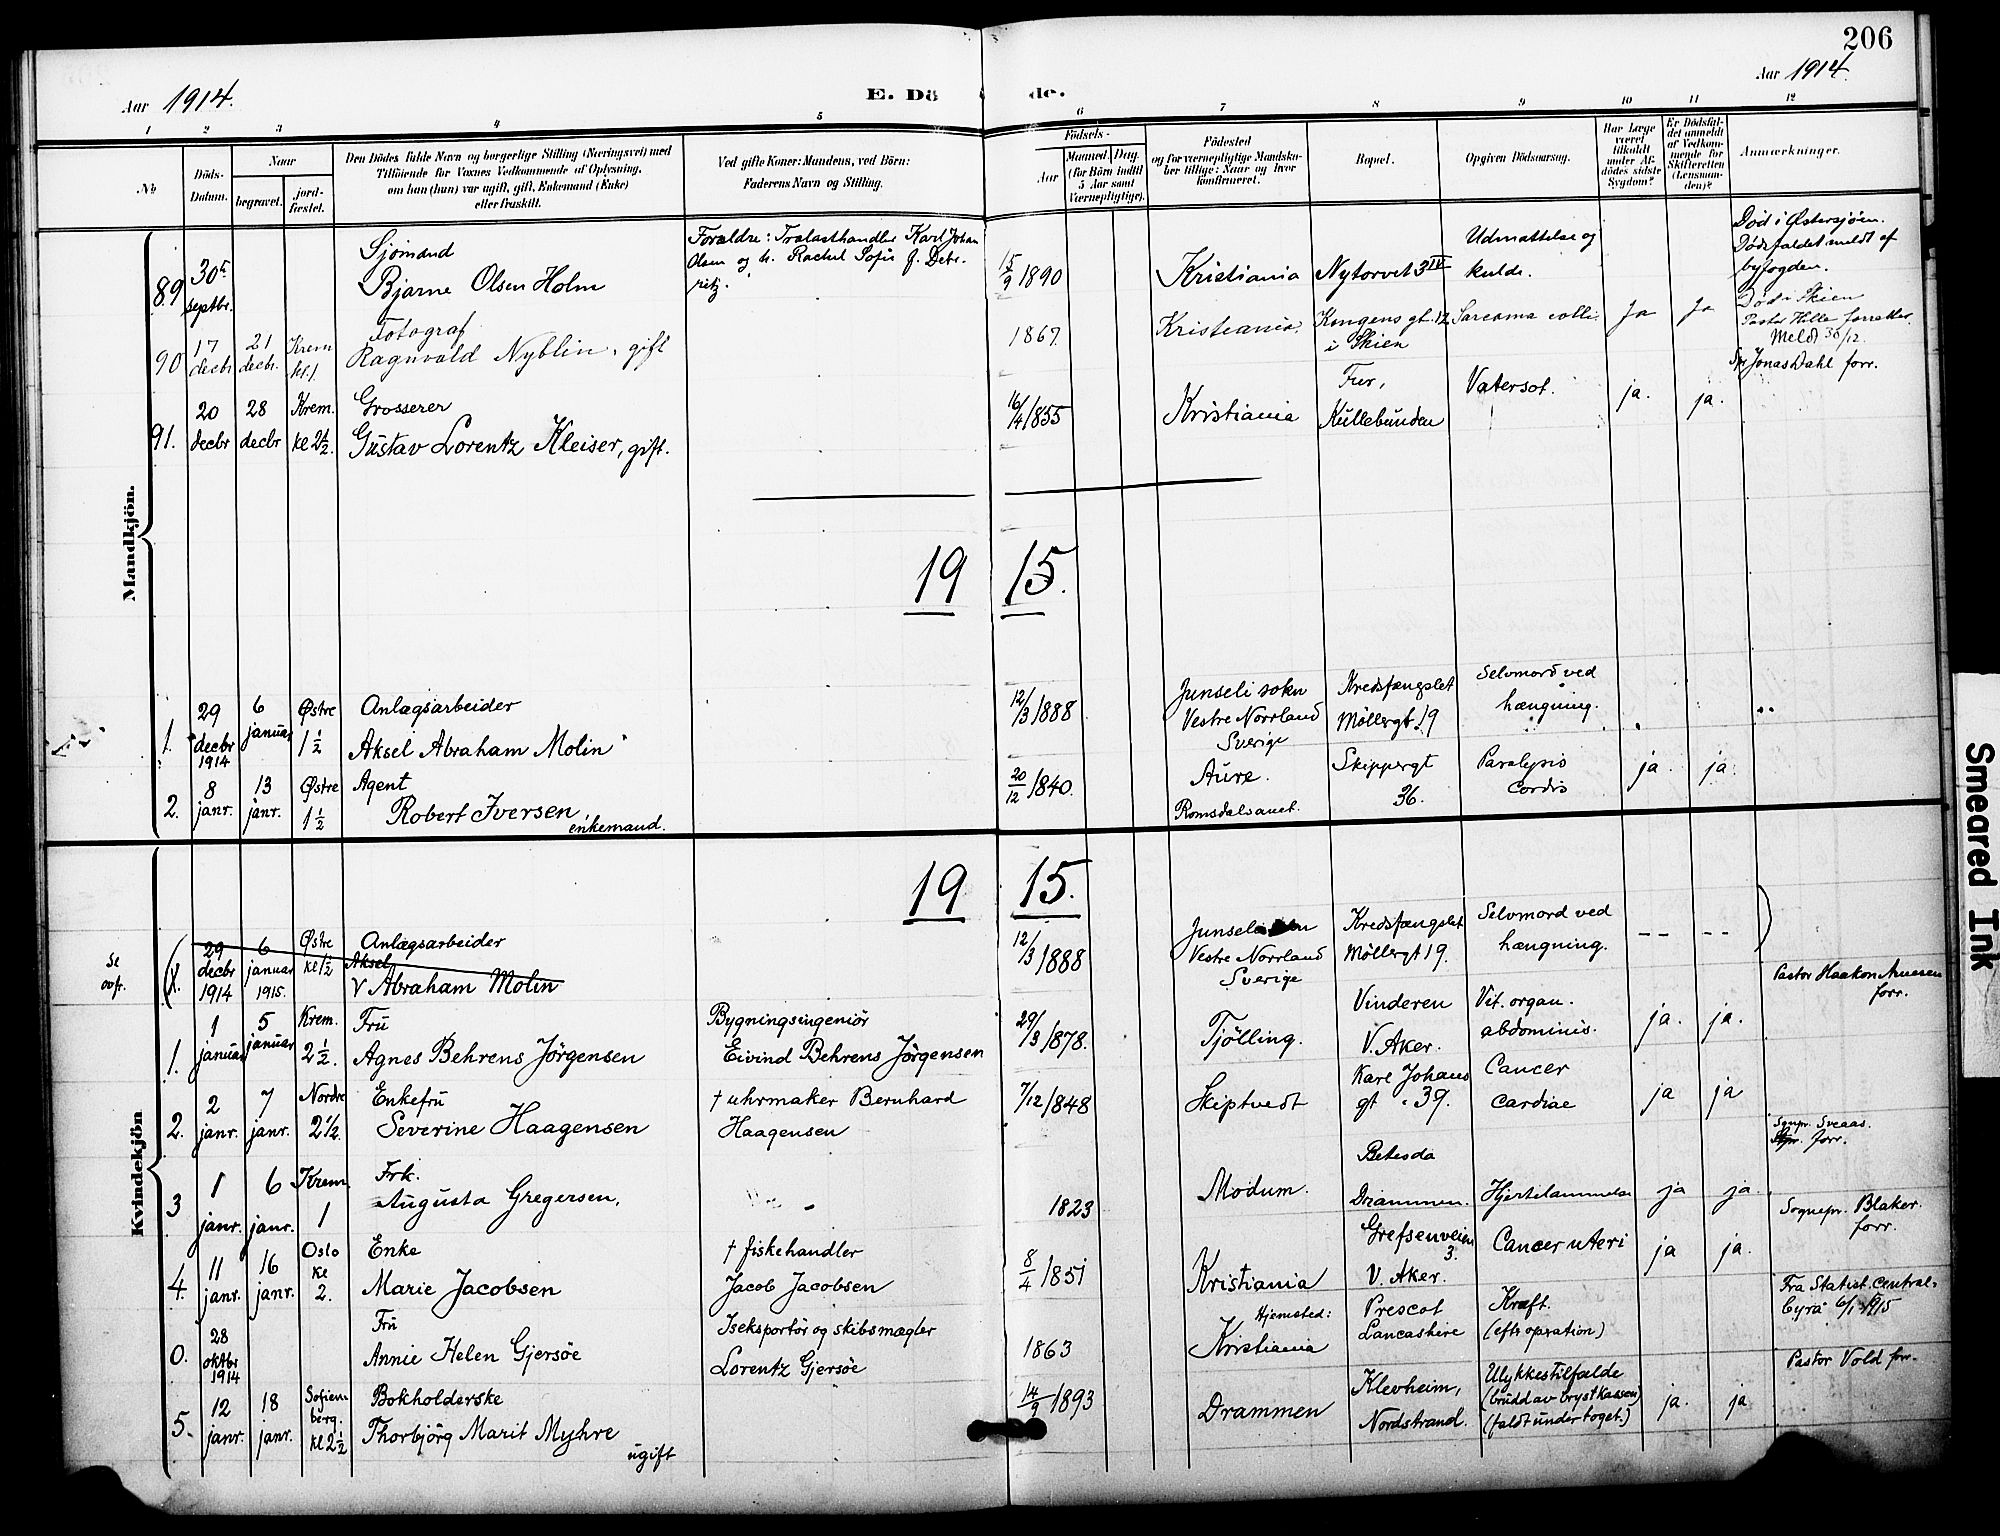 206
Aar 1914.
E. Dö de.
Aar 1914.
1 2 3 4 5 6 7 8 9 10 11 12
No
Döds-Datum.
Naar
begravet.
jord-fæstet.
Den Dödes fulde Navn og borgerlige Stilling (Næringsvei) med
Tilföiende for Voxnes Vedkommende af Oplysning,
om han (hun) var ugift, gift, Enkemand (Enke)
eller fraskilt.
Ved gifte Koner: Mandens, ved Börn:
Faderens Navn og Stilling.
Födsels-
Aar
Maaned. Dag.
(for Börn indtil
5 Aar samt
Værnepligtige).
Födested
og for værnepligtige Mandska-
ber tillige: Naar og hvor
konfirmeret.
Bopæl.
Opgiven Dödsaarsag.
Har Læge
været
tilkaldt
under Af-
dödes sidste
Sygdom?
Er Dödsfal-
det anmeldt
af Vedkom-
mende for
Skifteretten
(Lensman-
den)?
Anmærkninger.
Mandkjön.
89 30te septbr. Sjömand
Bjarne Olsen Holm
Forældre: Trælasthandler Karl Johan
Olsen og h. Rachel Sofie f.
15/9 1890 Kristiania Nytorvet 3 IV Udmattelse og
kulde.
Död i Østersjøen.
Dödsfaldet meldt af
byfogden.
90 17 decbr 21 decbr. Krem. kl. 1 Fotograf
Ragnvald Nyblin, gift
1867 Kristiania. Kongens gt. 12
i Skien
Sarcoma colli Ja Ja
Död i Skien
Pastor Hille forretter.
Meldt 30/12.
91. 20 decbr 28 decbr Krem. kl 2½. Grosserer
Gustav Lorentz Kleiser, gift.
16/4 1855 Kristiania Fur,
Kullebunden
Vatersot. ja. ja.
Jonas Dahl forr.
19 15.
1. 29 decbr 1914 6 januar Østre 1 ½ Anlægsarbeider
Aksel Abraham Molin
12/3 1888 Junseli sokn
Vestre Norrland
Sverige
Kredsfængslet
Möllergt 19
Selvmord ved
hængning.
2. 8 janr. 13 janr. Østre 1 ½ Agent
Robert Iversen, enkemand.
20/12 1840. Aure.
Romsdalsamt.
Skippergt
36.
Paralysis
cordis
ja. ja.
Kvindekjön
19 15.
se ovfr.
29 decbr 1914 6 januar 1915. Østre kl 1½ Anlægsarbeider
Aksel
V Abraham Molin
12/3 1888 Junseli
Vestre Norrland
Sverige
Kredsfængslet
Möllergt 19.
Selvmord ved
hængning.
-- --
1. 1 januar 5 januar Krem. 2 ½. Fru
Agnes Behrens Jörgensen
Bygningsingeniör
Eivind Behrens Jörgensen
29/3 1878. Tjölling. Vinderen
V. Aker.
Vit. organ.
abdominis.
ja. ja.
Pastor Haakon
forr.
2. 2 janr. 7 janr. Nordre 2 ½. Enkefru
Severine Haagensen
† uhrmaker Bernhard
Haagensen
7/12 1848 Skiptvedt Karl Johans
gt. 39.
Cancer
cardiae
ja ja
3 1 janr. 6 janr. Krem. 1 Frk.
Augusta Gregersen,
1823 Modum. Betesda
Drammen.
Hjertelammelse ja ja.
Sognpr. Sveaas.
forr.
4. 11 janr. 16 janr. Oslo kl 2. Enke
Marie Jacobsen
† fiskehandler
Jacob Jacobsen
8/4 1851 Kristiania Grefsenveien
3.
V. Aker.
Cancer uteri ja ja.
Sognepr. Blaker.
forr.
0. 28 oktbr 1914 Fru
Annie Helen Gjersöe
Iseksportör og skibsmægler
Lorentz Gjersöe
1863 Hjemsted:
Kristiania
Prescot
Lancashire
Kræft.
(eftr opration)
Fra Statist. Central-
byrå 6/1 1915
5. 12 janr. 18 janr. Sofien-
berg.
kl 2½
Bokholderske
Thorbjörg Marit Myhre
ugift
14/9 1893 Drammen Klevheim,
Nordstrand.
Ulykkestilfælde
(brudd av brystkassen)
(faldt under toget.)
ja. ja
Pastor Vold forr.
Smeared Ink